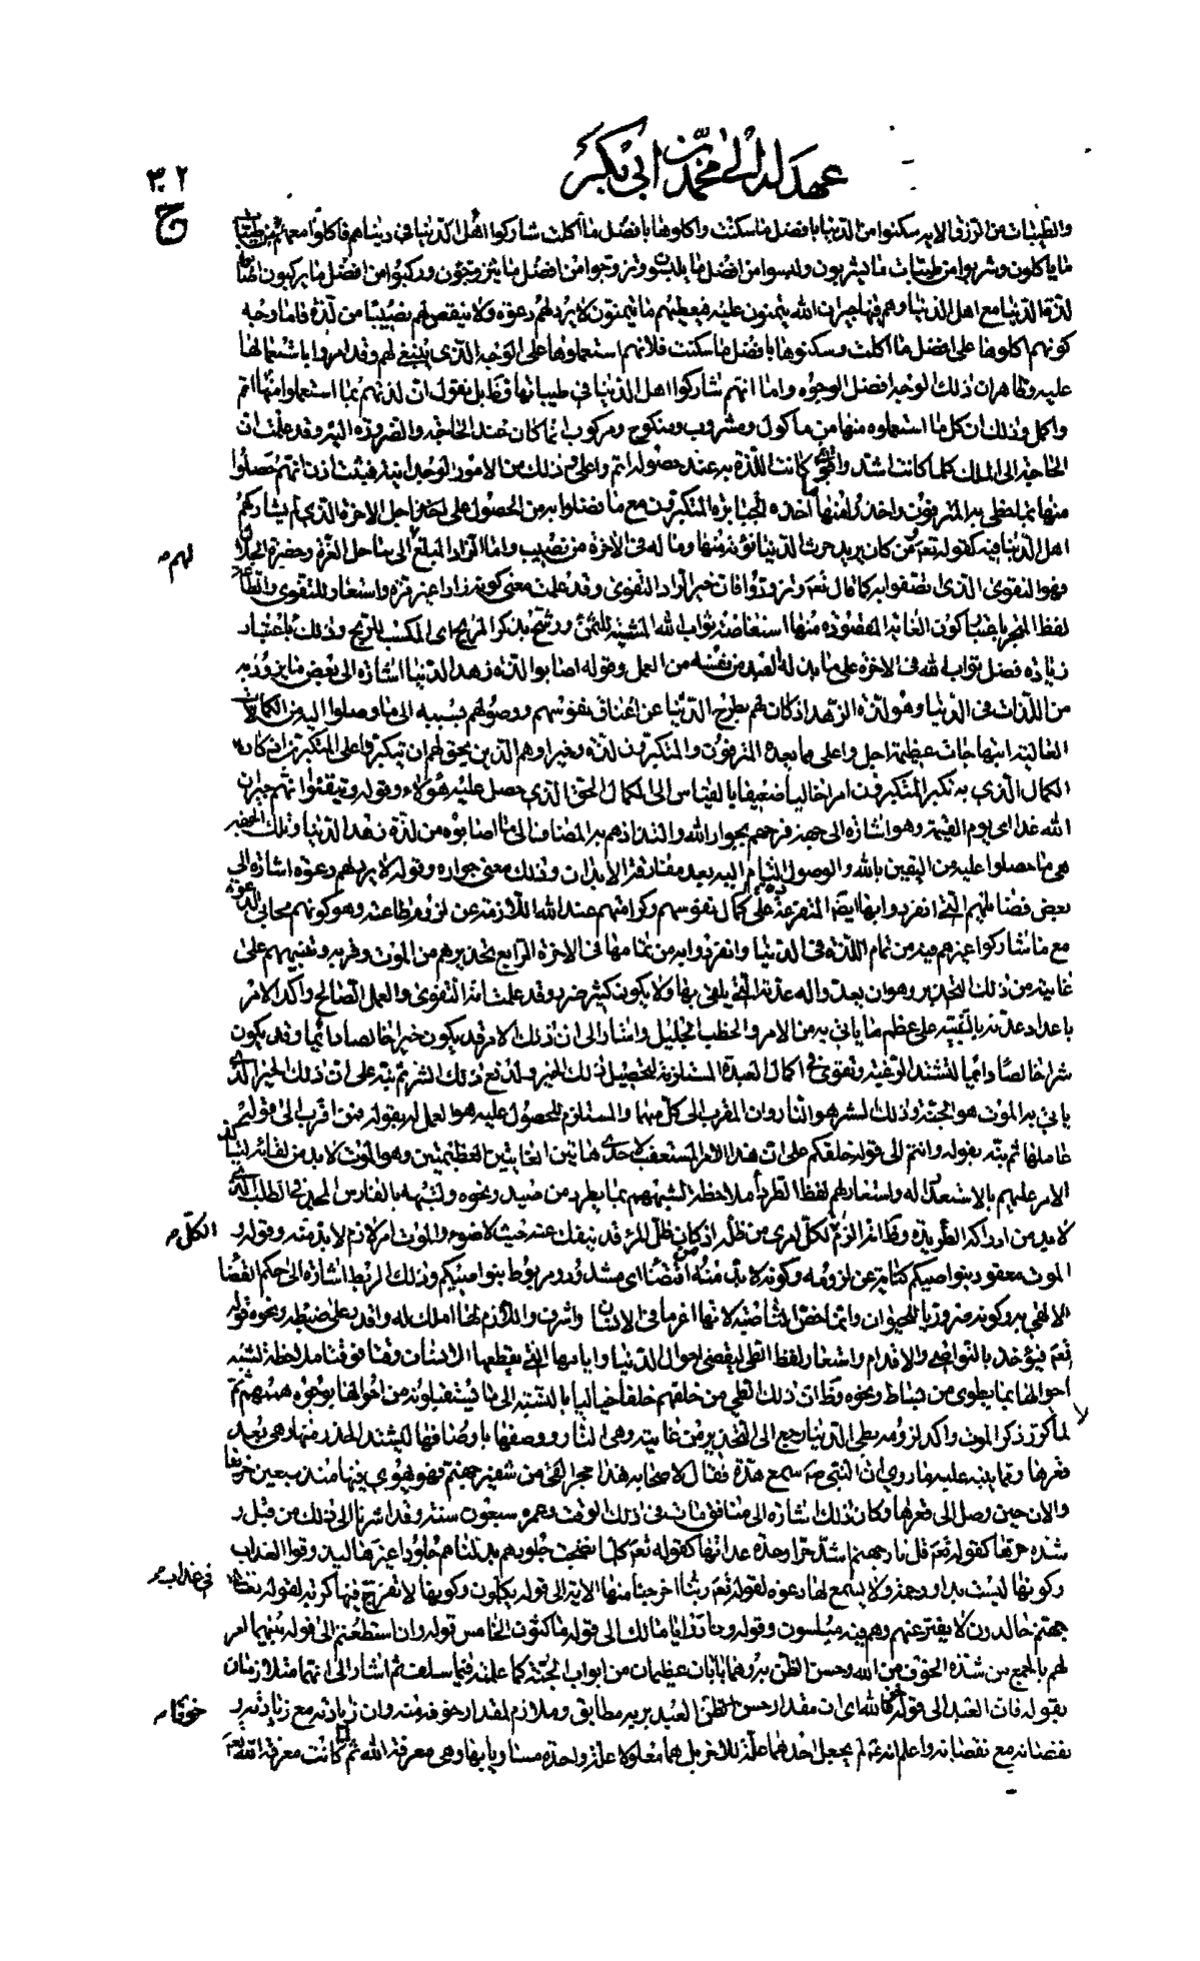 عهد له الى محمد بن ابي بكر
٣٠٢
ج
والطيبات من الرزق الاية سكنوا من الدنيا بافضل ما سكنت واكلوها بافضل ما اكلت شاركوا اهل الدنيا في دنياهم فاكلوا معهم من طيبات
ما ياكلون وشربوا من طيبات ما يشربون ولبسوا من افضل ما يلبسون وتزوجوا من افضل ما يتزوجون وركبوا من افضل ما يركبون اصابوا
لذة الدنيا مع اهل الدنيا وهم غدا جيران الله يتمنون عليه فيعطيهم ما يتمنون لا يرد لهم دعوة ولا ينقص لهم نصيبا من لذة فاما وجه
كونهم اكلوها على افضل ما اكلت وسكنوها بافضل ما سكنت فلانهم استعملوها على الوجه الذي ينبغي لهم وقد امروا باستعمالها
عليه وظاهر ان ذلك الوجه افضل الوجوه واما انهم شاركوا اهل الدنيا في طيباتها فظ بل نقول ان لذتهم بما استعملوا منها اتم
واكمل وذلك ان كل ما استعملوه منها من ماكول ومشروب ومنكوح ومركوب انما كان عند الحاجة والضرورة اليه وقد علمت ان
الحاجة الى الملك كلما كانت اشد واقوى كانت اللذة به عند حصوله اتم واعلى وذلك من الامور الوجدانية فثبت اذن انهم حصلوا
منها بما حظي به المترفون واخذوا منها اخذه الجبابرة المتكبرون مع ما فضلوا به من الحصول على اجل الاخرة الذي لم يشاركهم
اهل الدنيا فيه كقوله تعم ومن كان يريد حرث الدنيا نؤته منها وما له في الاخرة من نصيب واما الزاد المبلغ لهم الى ساحل العزة وحضرة الجلال
فهو التقوى الذي اتصفوا به كما قال تعم وتزودوا فان خير الزاد التقوى وقد علمت معنى كونه زادا غير مرة واستعار للتقوى والطاعة
لفظ المتجر باعتبار كون الغاية المقصودة منها استعاضة ثواب الله المشبه للثمن ورشح بذكر المربح اي المكسب للربح وذلك باعتبار
زيادة فضل ثواب الله في الاخرة على ما بذله العبد من نفسه من العمل وقوله اصابوا لذة زهد الدنيا اشارة الى بعض ما يزودبه
من اللذات في الدنيا وهو لذة الزهد اذ كان لهم بطرح الدنيا عن اعناق نفوسهم ووصولهم بسببه الى ما وصلوا اليه من الكمالات
العالية ابتهاجات عظيمة اجل واعلى مما يجده المترفون والمتكبرون لذة وخيرا وهم الذين يحق لهم ان يتكبروا على المتكبرين اذ كان
الكمال الذي به تكبر المتكبرون امرا خاليا ضعيفا بالقياس الى الكمال الحق الذي حصل عليه هؤلاء وقوله وتيقنوا انهم جيران
الله غدا اي يوم القيمة وهو اشارة الى جهة فرحهم بجوار الله والتذاذهم به المضاف الى ما اصابوه من لذة زهد الدنيا وتلك الجهة
هي ما حصلوا عليه من اليقين بالله والوصول التام اليه بعد مفارقة الابدان وذلك معنى جواره وقوله لا يرد لهم دعوة اشارة الى
بعض فضائلهم التي انفردوا بها ايضا المتفرعة على كمال نفوسهم وكرامتهم عند الله اللازمة عن لزوم طاعته وهو كونهم مجابي الدعوة
مع ما شاركوا غيرهم فيه من تمام اللذة في الدنيا وانفردوا به من تمامها في الاخرة الرابع تحذيرهم من الموت وقربه وتنبيههم على
غايته من ذلك التحذير وهو ان يعدوا له عدته التي يلقى بها ولا يكون كثير ضر وقد علمت انها التقوى والعمل الصالح واكد الامر
باعداد عدته بالتنبيه على عظم ما ياتي به من الامر والخطب الجليل واشار الى ان ذلك الامر قد يكون خيرا خالصا دائما وقد يكون
شرا خالصا دائما لتشتد الرغبة وتقوى في اكمال العدة المستلزمة لتحصيل ذلك الخير ولدفع ذلك الشر ثم نبه على ان ذلك الخير الذي
ياتي به الموت هو الجنة وذلك الشر هو النار وان المقرب الى كل منهما والمستلزم للحصول عليه هو العمل له بقوله فمن اقرب الى قوله
عاملها ثم نبه بقوله وانتم الى قوله خلقكم على ان هذا الامر المستعقب لاحدى هاتين الغايتين العظيمتين وهو الموت لا بد من لقائه ليتاكد
الامر عليهم بالاستعداد له واستعار لهم لفظ الطرداء ملاحظة لشبههم بما يطرد من صيد ونحوه ولشبهه بالفارس المجد في الطلب الذي
لا بد من ادراكه الطريدة وظ انه الزم لكل امرئ من ظله اذ كان ظل المرء قد ينفك عنه حيث لا ضوء والموت امر لازم لا بد منه وقوله
الموت معقود بنواصيكم كناية عن لزومه وكونه لا بد منه اقتضاء اي مشدود ومربوط بنواصيكم وذلك الربط اشارة الى حكم القضاء
الالهي به وكونه ضروريا للحيوان وانما خص الناصية لانها اعز ما في الانسان واشرف واللازم لها املك له واقدر على ضبطه ونحوه قوله
تعم فيؤخذ بالنواصي والاقدام واستعار لفظ الطي لتقضي احوال الدنيا وايامها التي يقطعها الانسان وقتا فوقتا ملاحظة لشبه
احوالها بما يطوى من بساط ونحوه وظ ان ذلك الطي من خلفهم خلفا خياليا بالنسبة الى ما يستقبلونه من احوالها بوجوه هممهم ثم
لما كرر ذكر الموت واكد لزومه بطي الدنيا رجع الى التحذير من غايته وهي النار ووصفها باوصافها ليشتد الحذر منها وهي بعد
قعرها ومما ينبه عليه ما روي ان النبي ص سمع هدة فقال لاصحابه هذا حجر القي من شفير جهنم فهو يهوي فيها منذ سبعين خريفا
والان حين وصل الى قعرها وكان ذلك اشارة الى منافق مات في ذلك الوقت وعمره سبعون سنة وقد اشرنا الى ذلك من قبل و
شدة حرها كقوله تعم قل نار جهنم اشد حرا وجدة عذابها كقوله تعم كلما نضجت جلودهم بدلناهم جلودا غيرها ليذوقوا العذاب
وكونها ليست بدار رحمة ولا يسمع لها دعوة لقوله تعم ربنا اخرجنا منها الاية الى قوله يكلمون وكونها لا تفرج فيها كربة لقوله تعم في عذاب
جهنم خالدون لا يفتر عنهم وهم فيه مبلسون وقوله ونادوا يا مالك الى قوله ماكثون الخامس قوله وان استطعتم الى قوله بينهما امر
لهم بالجمع بين شدة الخوف من الله وحسن الظن به وهما بابان عظيمان من ابواب الجنة كما علمته فيما سلف ثم اشار الى انهما متلازمان
بقوله فان العبد الى قوله خوفا لله اي ان مقدار حسن ظن العبد بربه مطابق وملازم لمقدار خوفه منه وان زيادته مع زيادته و
نقصانه مع نقصانه واعلم انه ع لم يجعل احدهما علة للاخر بل هما معلولا علة واحدة مساويا بها وهي معرفة الله ثم لما كانت معرفة الله تعم
لهم ص
الكل ص
في عذاب ص
خوفا ص